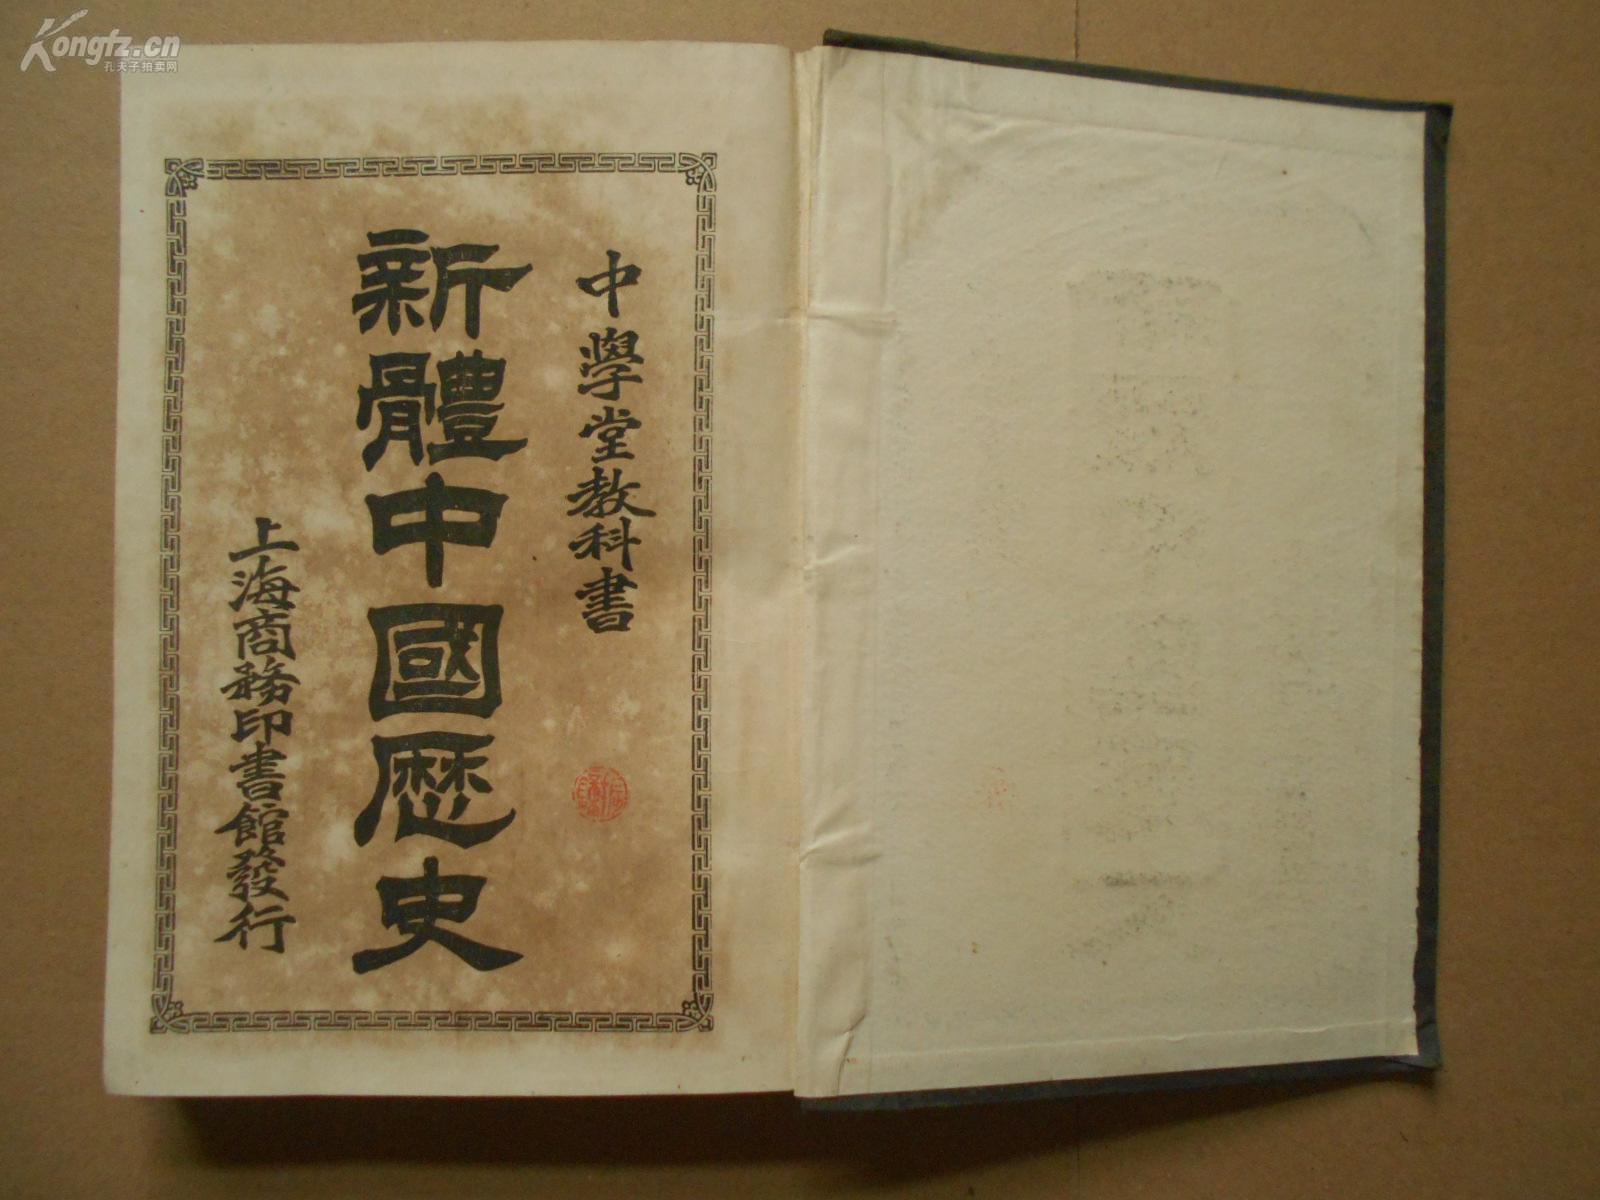 中學堂教科書
新體中國歷史
上海商務印書館發行
Kongfz.cn
孔夫子拍卖网